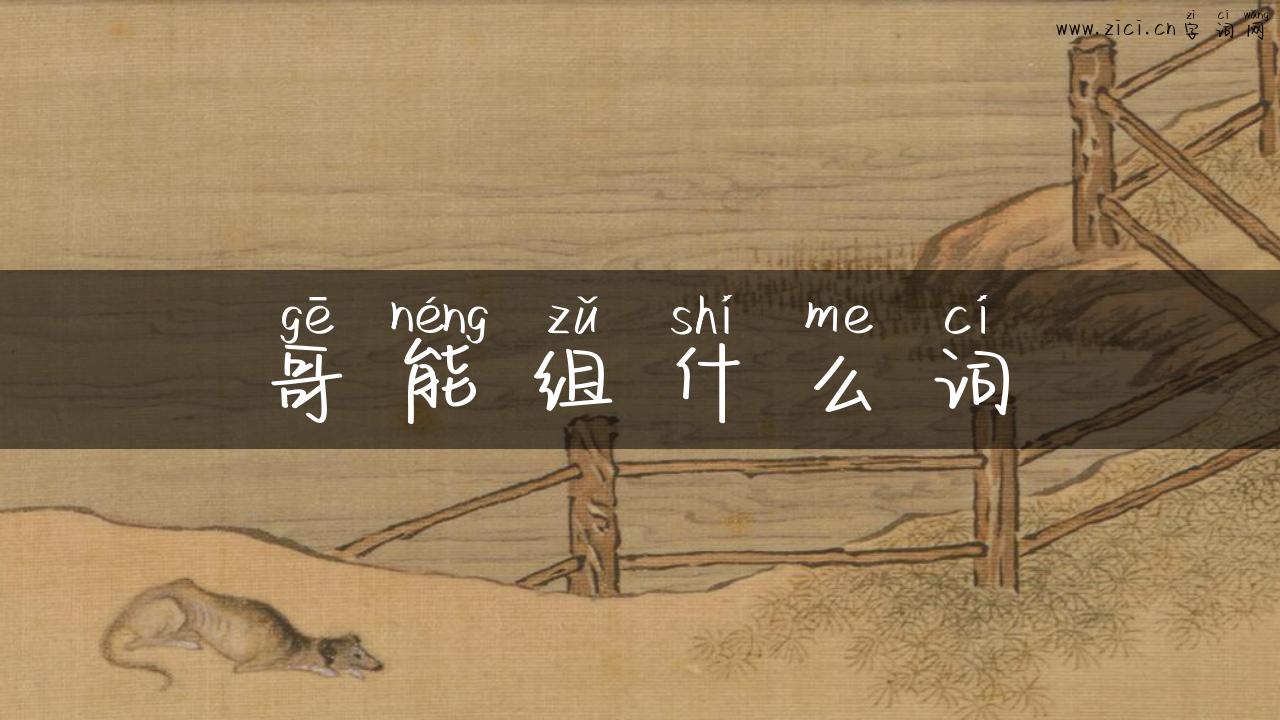 zì cí wǎng
www.zici.cn 字词网
gē néng zǔ shí me cí
哥能组什么词